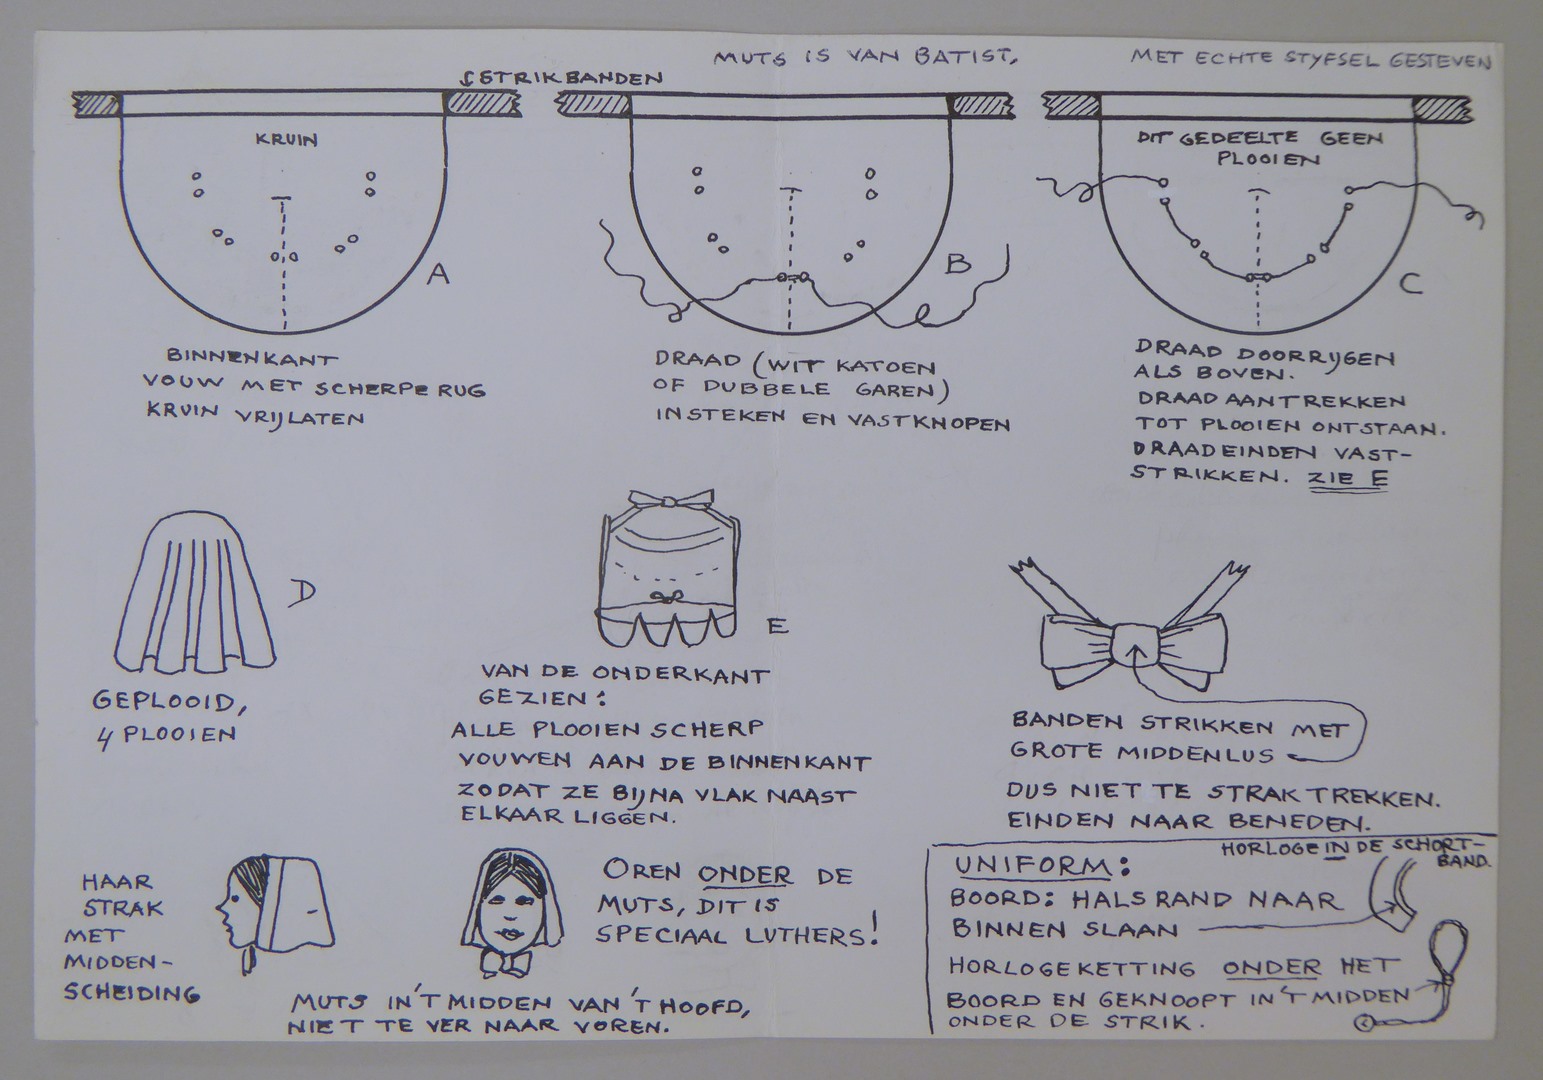 MUTS IS VAN BATIST,
MET ECHTE STYFSEL GESTEVEN
STRIKBANDEN
KRUIN
A
BINNENKANT
VOUW MET SCHERPE RUG
KRUIN VRIJLATEN
B
DRAAD (WIT KATOEN
OF DUBBELE GAREN)
INSTEKEN EN VASTKNOPEN
DIT GEDEELTE GEEN
PLOOIEN
C
DRAAD DOORRIJGEN
ALS BOVEN.
DRAAD AANTREKKEN
TOT PLOOIEN ONTSTAAN.
DRAADEINDEN VAST-
STRIKKEN. ZIE E
D
GEPLOOID,
4 PLOOIEN
E
VAN DE ONDERKANT
GEZIEN:
ALLE PLOOIEN SCHERP
VOUWEN AAN DE BINNENKANT
ZODAT ZE BIJNA VLAK NAAST
ELKAAR LIGGEN.
BANDEN STRIKKEN MET
GROTE MIDDENLUS
DUS NIET TE STRAK TREKKEN.
EINDEN NAAR BENEDEN.
HAAR
STRAK
MET
MIDDEN-
SCHEIDING
OREN ONDER DE
MUTS, DIT IS
SPECIAAL LUTHERS!
MUTS IN'T MIDDEN VAN 'T HOOFD,
NIET TE VER NAAR VOREN.
HORLOGE IN DE SCHORT-
BAND.
UNIFORM:
BOORD: HALSRAND NAAR
BINNEN SLAAN
HORLOGEKETTING ONDER HET
BOORD EN GEKNOOPT IN'T MIDDEN
ONDER DE STRIK.